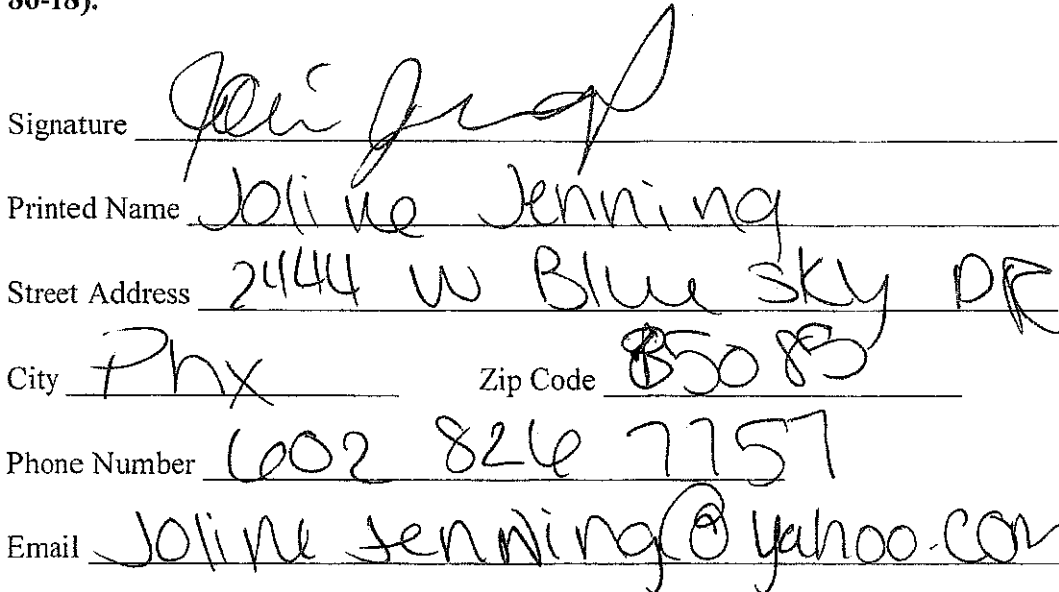 86-18).
Signature
Printed Name Joline Jenning
Street Address 2444 W Blue Sky DR
City Phx Zip Code 85085
Phone Number 602 826 7757
Email Joline Jenning@yahoo.com